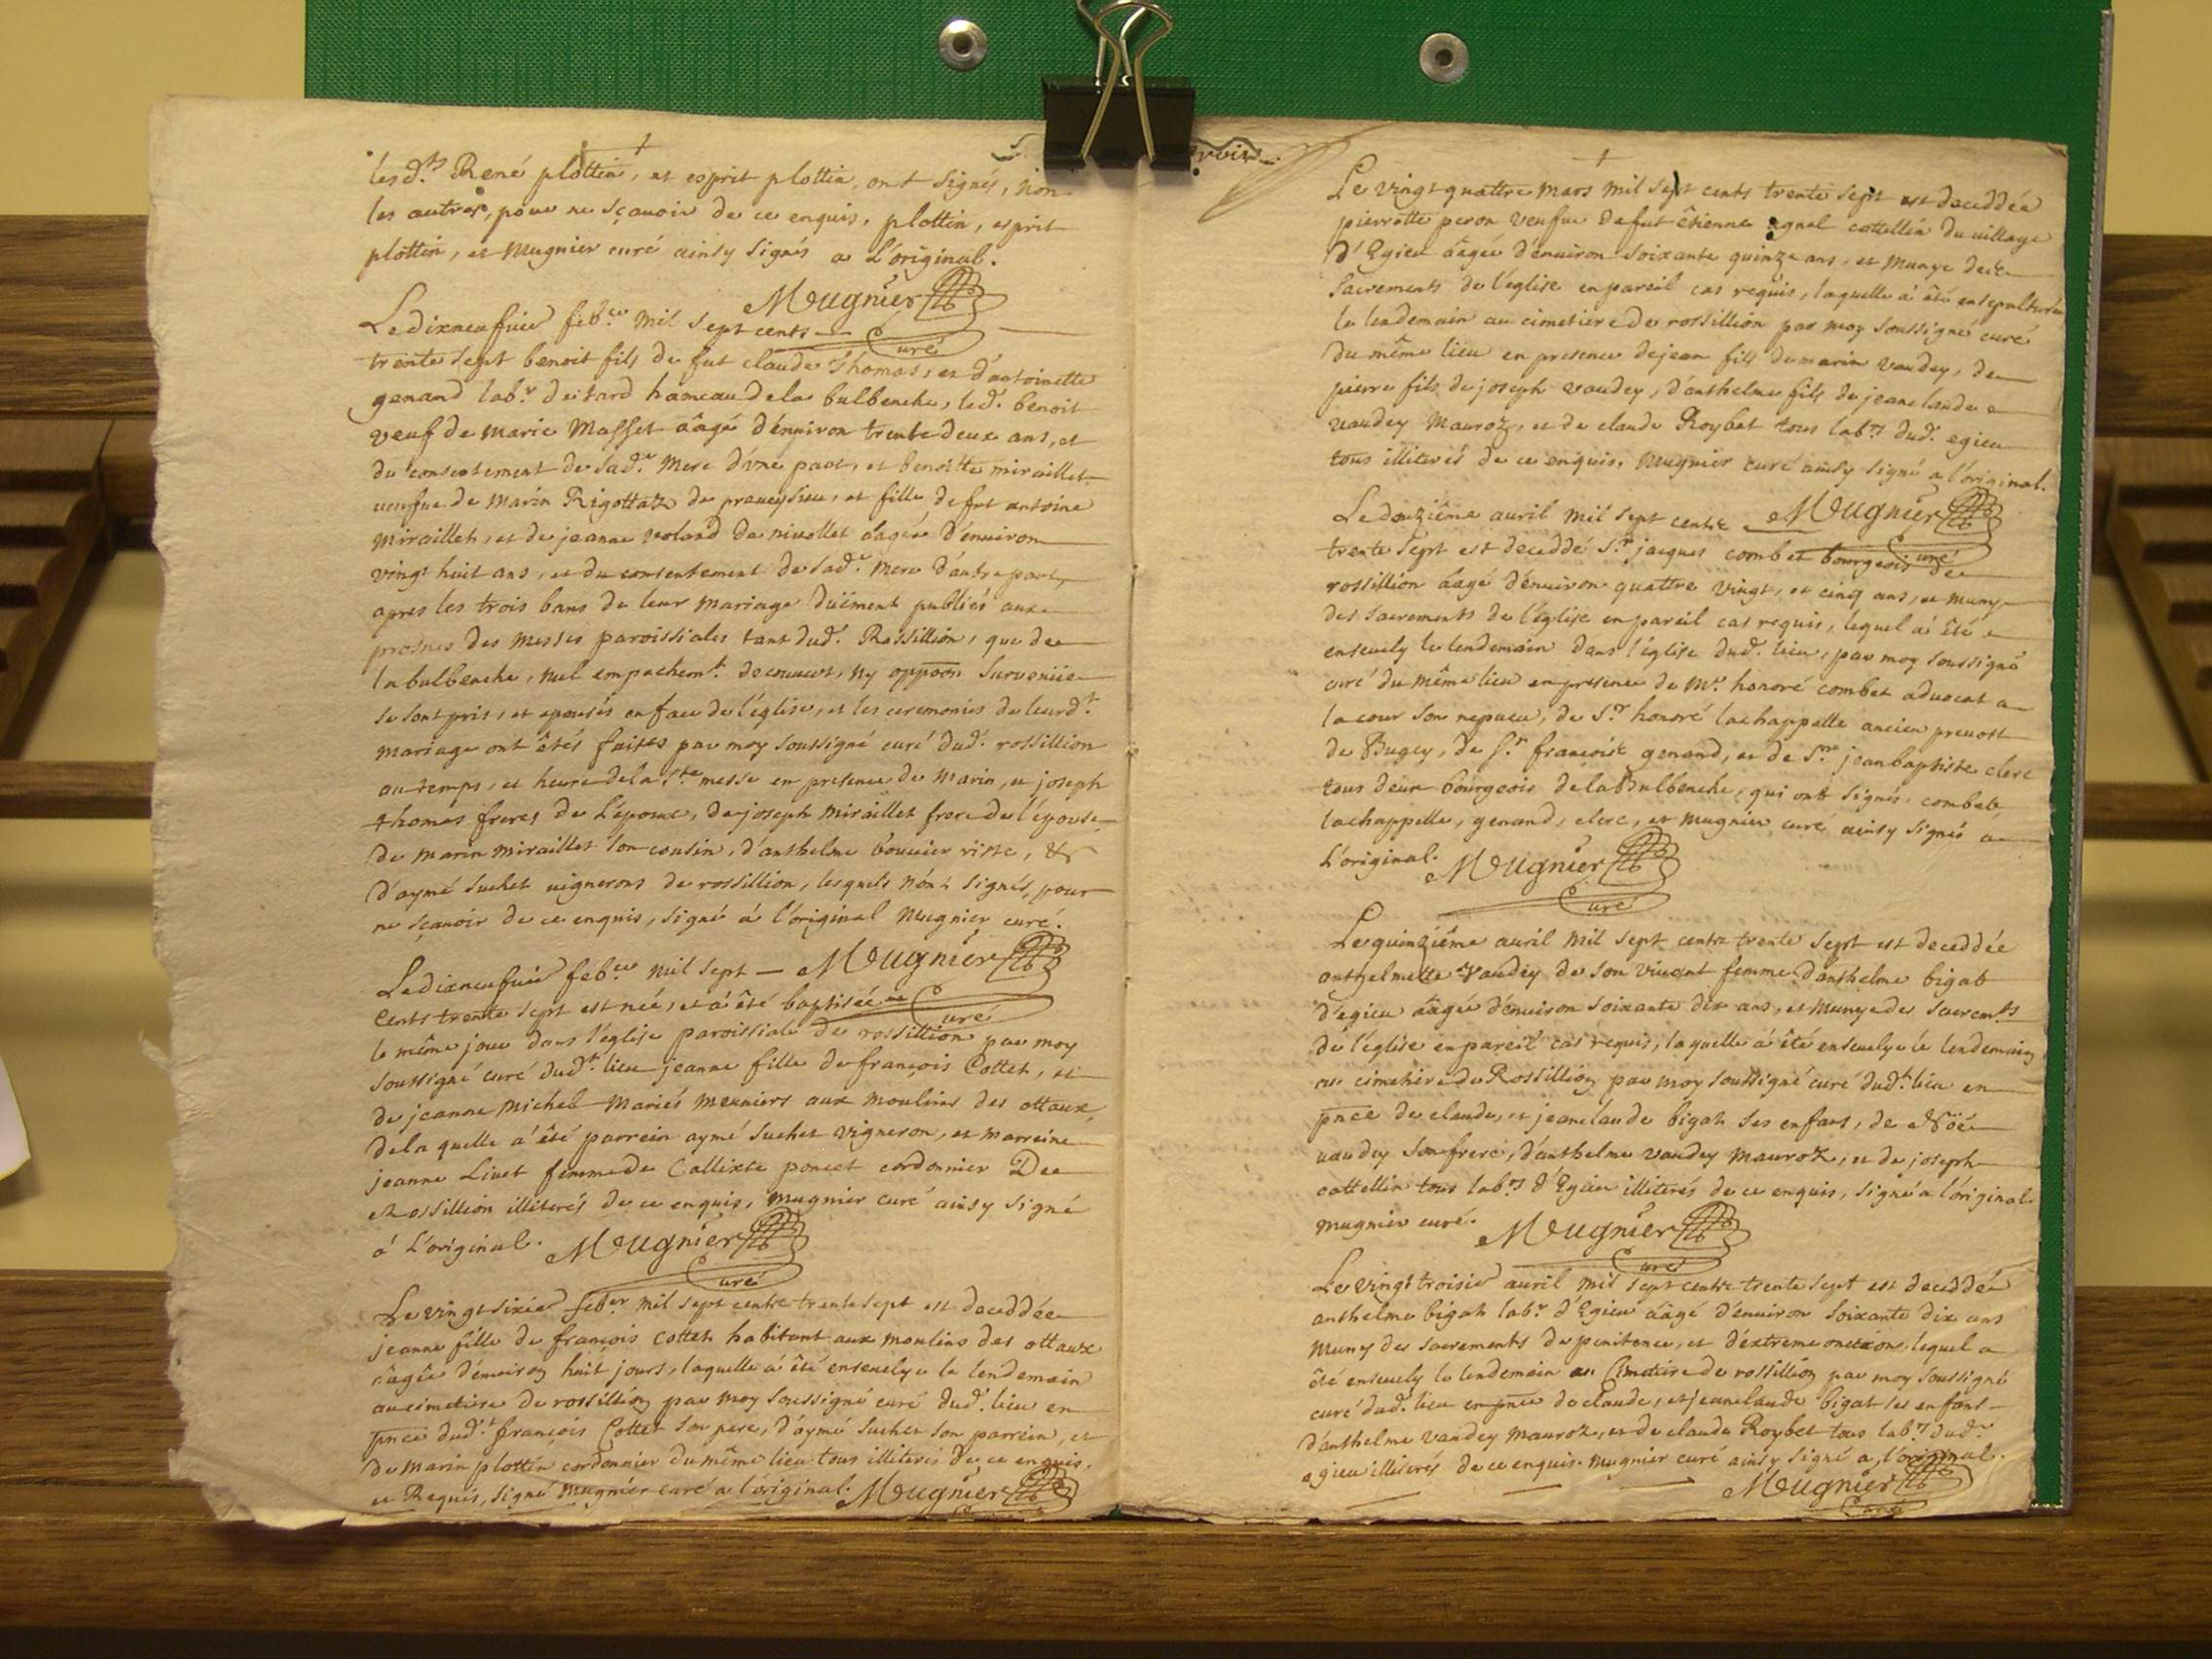 lesd.ts René plottin, et esprit plottin, ont signés, non
les autres, pour ne sçavoir de ce enquis, plottin, esprit
plottin, et Mugnier curé ainsy signés a L'original.
Mugnier
Curé
Le dixneufvie feb.er mil sept cents
trente sept benoit fils de fut claude Thomas, et d'antoinette
genand lab.r de tard hameau de la bulbenche, led. benoit
veuf de marie Masset aâgé d'environ trente deux ans, et
du consentement de sad.e mere d'une part, et benoitte miraillet
veufve de marin Rigottaz de preveysieu, et fille de fut antoine
miraillet, et de jeanne voland de nivollet aagée d'environ
vingt huit ans, et du consentement de sad.e mere d'autre part,
apres les trois bans de leur mariage düement publiés aux
prosnes des messes paroissiales tant dud. Rossillion, que de
la bulbenche, nul empechem.t decouvert, ny oppoôn survenüe
se sont pris, et epousés en face de l'église, et les ceremonies de leurd.t
mariage ont êtés faittes par moy soussigné curé dud. rossillion
au temps, et heure de la s.te messe en presence de marin, et joseph
thomas freres de L'époux, de joseph miraillet frere de l'épouse,
de marin miraillet son cousin, d'anthelme bouvier viste, &
d'aymé suchet vignerons de rossillion, lesquels n'ont signés, pour
ne sçavoir de ce enquis, signé á l'original Mugnier curé.
Mugnier
Curé
Le dixneufvie feb.er mil sept
cents trente sept est née, et a été baptisée
le même jour dans l'église paroissiale de rossillion par moy
soussigné curé dud.t lieu jeanne fille de françois Cottet, et
de jeanne michel mariés meuniers aux moulins des ottaux,
de la quelle a été parrein aymé suchet vigneron, et marreine
jeanne Livet femme de Callixte poncet cordonnier De
Rossillion illiterés de ce enquis, Mugnier curé ainsy signé
á L'original.
Mugnier
Curé
Le vingt sixie feb.er mil sept cents trente sept est deceddée
jeanne fille de françois Cottet habitant aux moulins des ottaux
âagée d'environ huit jours, laquelle a été ensevelye le lendemain
au cimetiere de rossillion par moy soussigné curé dud. lieu en
pnce dud.t françois Cottet son pere, d'aymé suchet son parrein, et
de marin plottin cordonnier du même lieu tous illiterés de ce enquis,
et Requis, signé Mugnier curé a l'original. Mugnier
Curé
Le vingt quattre mars mil sept cents trente sept est deceddée
pierrette peron veufve de fut êtienne cottellin du village
d'Egieu âagée d'environ soixante quinze ans, et munye des
sacrements de l'église en pareil cas requis, laquelle á été ensepulturée
le lendemain au cimetiere de rossillion par moy soussigné curé
du même lieu en presence de jean fils de marin vaudey, de
pierre fils de joseph vaudey, d'anthelme fils de jeanclaude
vaudey mauroz, et de claude Roybet tous lab.rs dud. egieu
tous illiterés de ce enquis, Mugnier curé ainsy signé a l'original.
Mugnier
Curé
Le douziême avril mil sept cents
trente sept est deceddé s.r jacques combet bourgeois de
rossillion âagé d'environ quattre vingt, et cinq ans, et muny
des sacrements de l'église en pareil cas requis, lequel á été
ensevely le lendemain dans l'église dud. lieu, par moy soussigné
curé du même lieu en presence de M.r honoré combet advocat a
la cour son nepveu, de s.r honoré lachappelle ancien prevost
de Bugey, de s.r françois genand, et de s.r jean baptiste clerc
tous deux bourgeois de la Bulbenche, qui ont signés. combet,
lachappelle, genand, clerc, et mugnier curé ainsy signés a
L'original. Mugnier
Curé
Le quinziême avril mil sept cents trente sept est deceddée
anthelmette vaudey de son vivant femme d'anthelme bigat
d'egieu âagée d'environ soixante dix ans, et munye des sacrem.ts
de l'église en pareil cas requis, laquelle á été ensevelye le lendemain
au cimetiere de Rossillion par moy soussigné curé dud.t lieu en
pnce de claude, et jeanclaude bigat ses enfans, de Noë
vaudey son frere, d'anthelme vaudey mauroz, et de joseph
cottellin tous lab.rs d'Egieu illiterés de ce enquis, signé a l'original
mugnier curé. Mugnier
Curé
Le vingt troisie avril mil sept cents trente sept est deceddé
anthelme bigat lab.r d'Egieu aâgé d'environ soixante dix ans
muny des sacrements de penitence, et d'extreme onction, lequel a
êté ensevely le lendemain au Cimetiere de rossillion par moy soussigné
curé dud. lieu en pnce de claude, et jeanclaude bigat ses enfans
d'anthelme vaudey mauroz, et de claude Roybet tous lab.rs dud.
egieu illiterés de ce enquis. mugnier curé ainsy signé a l'original.
Mugnier
Curé